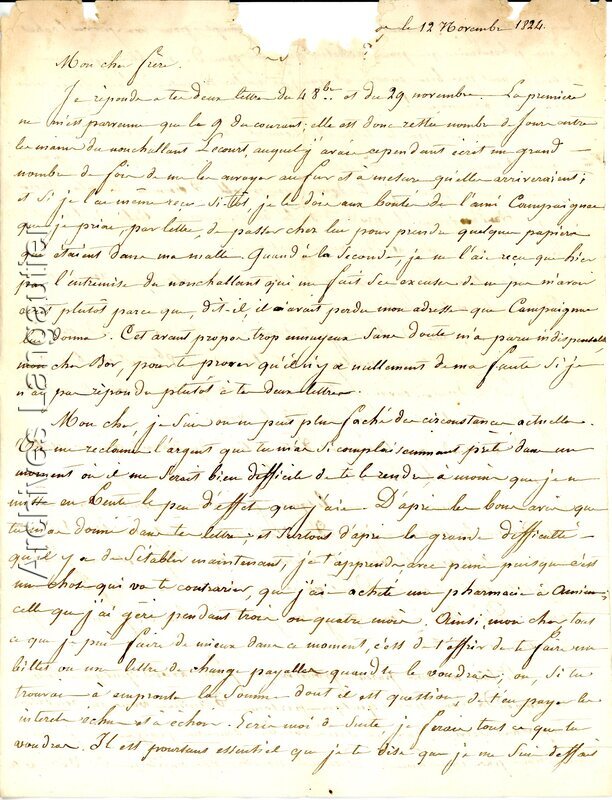 le 12 Novembre 1824.
Mon cher frère.
Je réponds a tes deux lettre du 4 8bre et du 29 novembre. La première
ne m'est parvenue que le 9 du courant; elle est donc restée nombre de jours entre
les mains du nonchallant Lecourt, auquel j'avais cependant écrit un grand
nombre de fois de me les envoyer au fur et à mesure qu'elles arriveraient;
et si je l'ai même reçu si-tôt, je le dois aux bontés de l'ami Campaignac
que je priai, par lettre de passer chez lui pour prendre quelques papiers
qui étaient dans ma malle. Quand à la seconde, je ne l'ai reçu que hier
par l'entremise du nonchallant qui me fait ses excuses de ne pas m'avoir
écrit plutôt parce que, dit-il, il avait perdu mon adresse que Campaignac
lui donna. Cet avant propos trop ennuyeux sans doute m'a paru indispensable
mon cher Bor, pour te prouver qu'il n'y a nullement de ma faute si je
n'ai pas répondu plutôt à tes deux lettres.
Mon cher, je suis on ne peut plus faché des circonstances actuelles.
Tu me réclames l'argent que tu m'as si complaisemment prêté dans un
moment où il me serait bien difficile de te le rendre à moins que je ne
mette en vente le peu d'effet que j'ai. D'après les bons avis que
tu m'as donné dans tes lettres et surtout d'après la grande difficulté
qu'il y a de s'établir maintenant, je t'apprends avec peine puisque c'est
une chose qui va te contrarier, que j'ai acheté une pharmacie à Amiens
celle que j'ai gèré pendant trois ou quatre mois. Ainsi, mon cher tout
ce que je puis faire de mieux dans ce moment, c'est de t'offrir de te faire un
billet ou une lettre de change payables quand tu le voudras; ou, si tu
trouvas à emprunter la somme dont il est question, de t'en payer les
interets echus et a echoir. Ecris moi de suite, je ferai tout ce que tu
voudras. Il est pourtant essentiel que je te dise que je me suis défait
Archives Languille